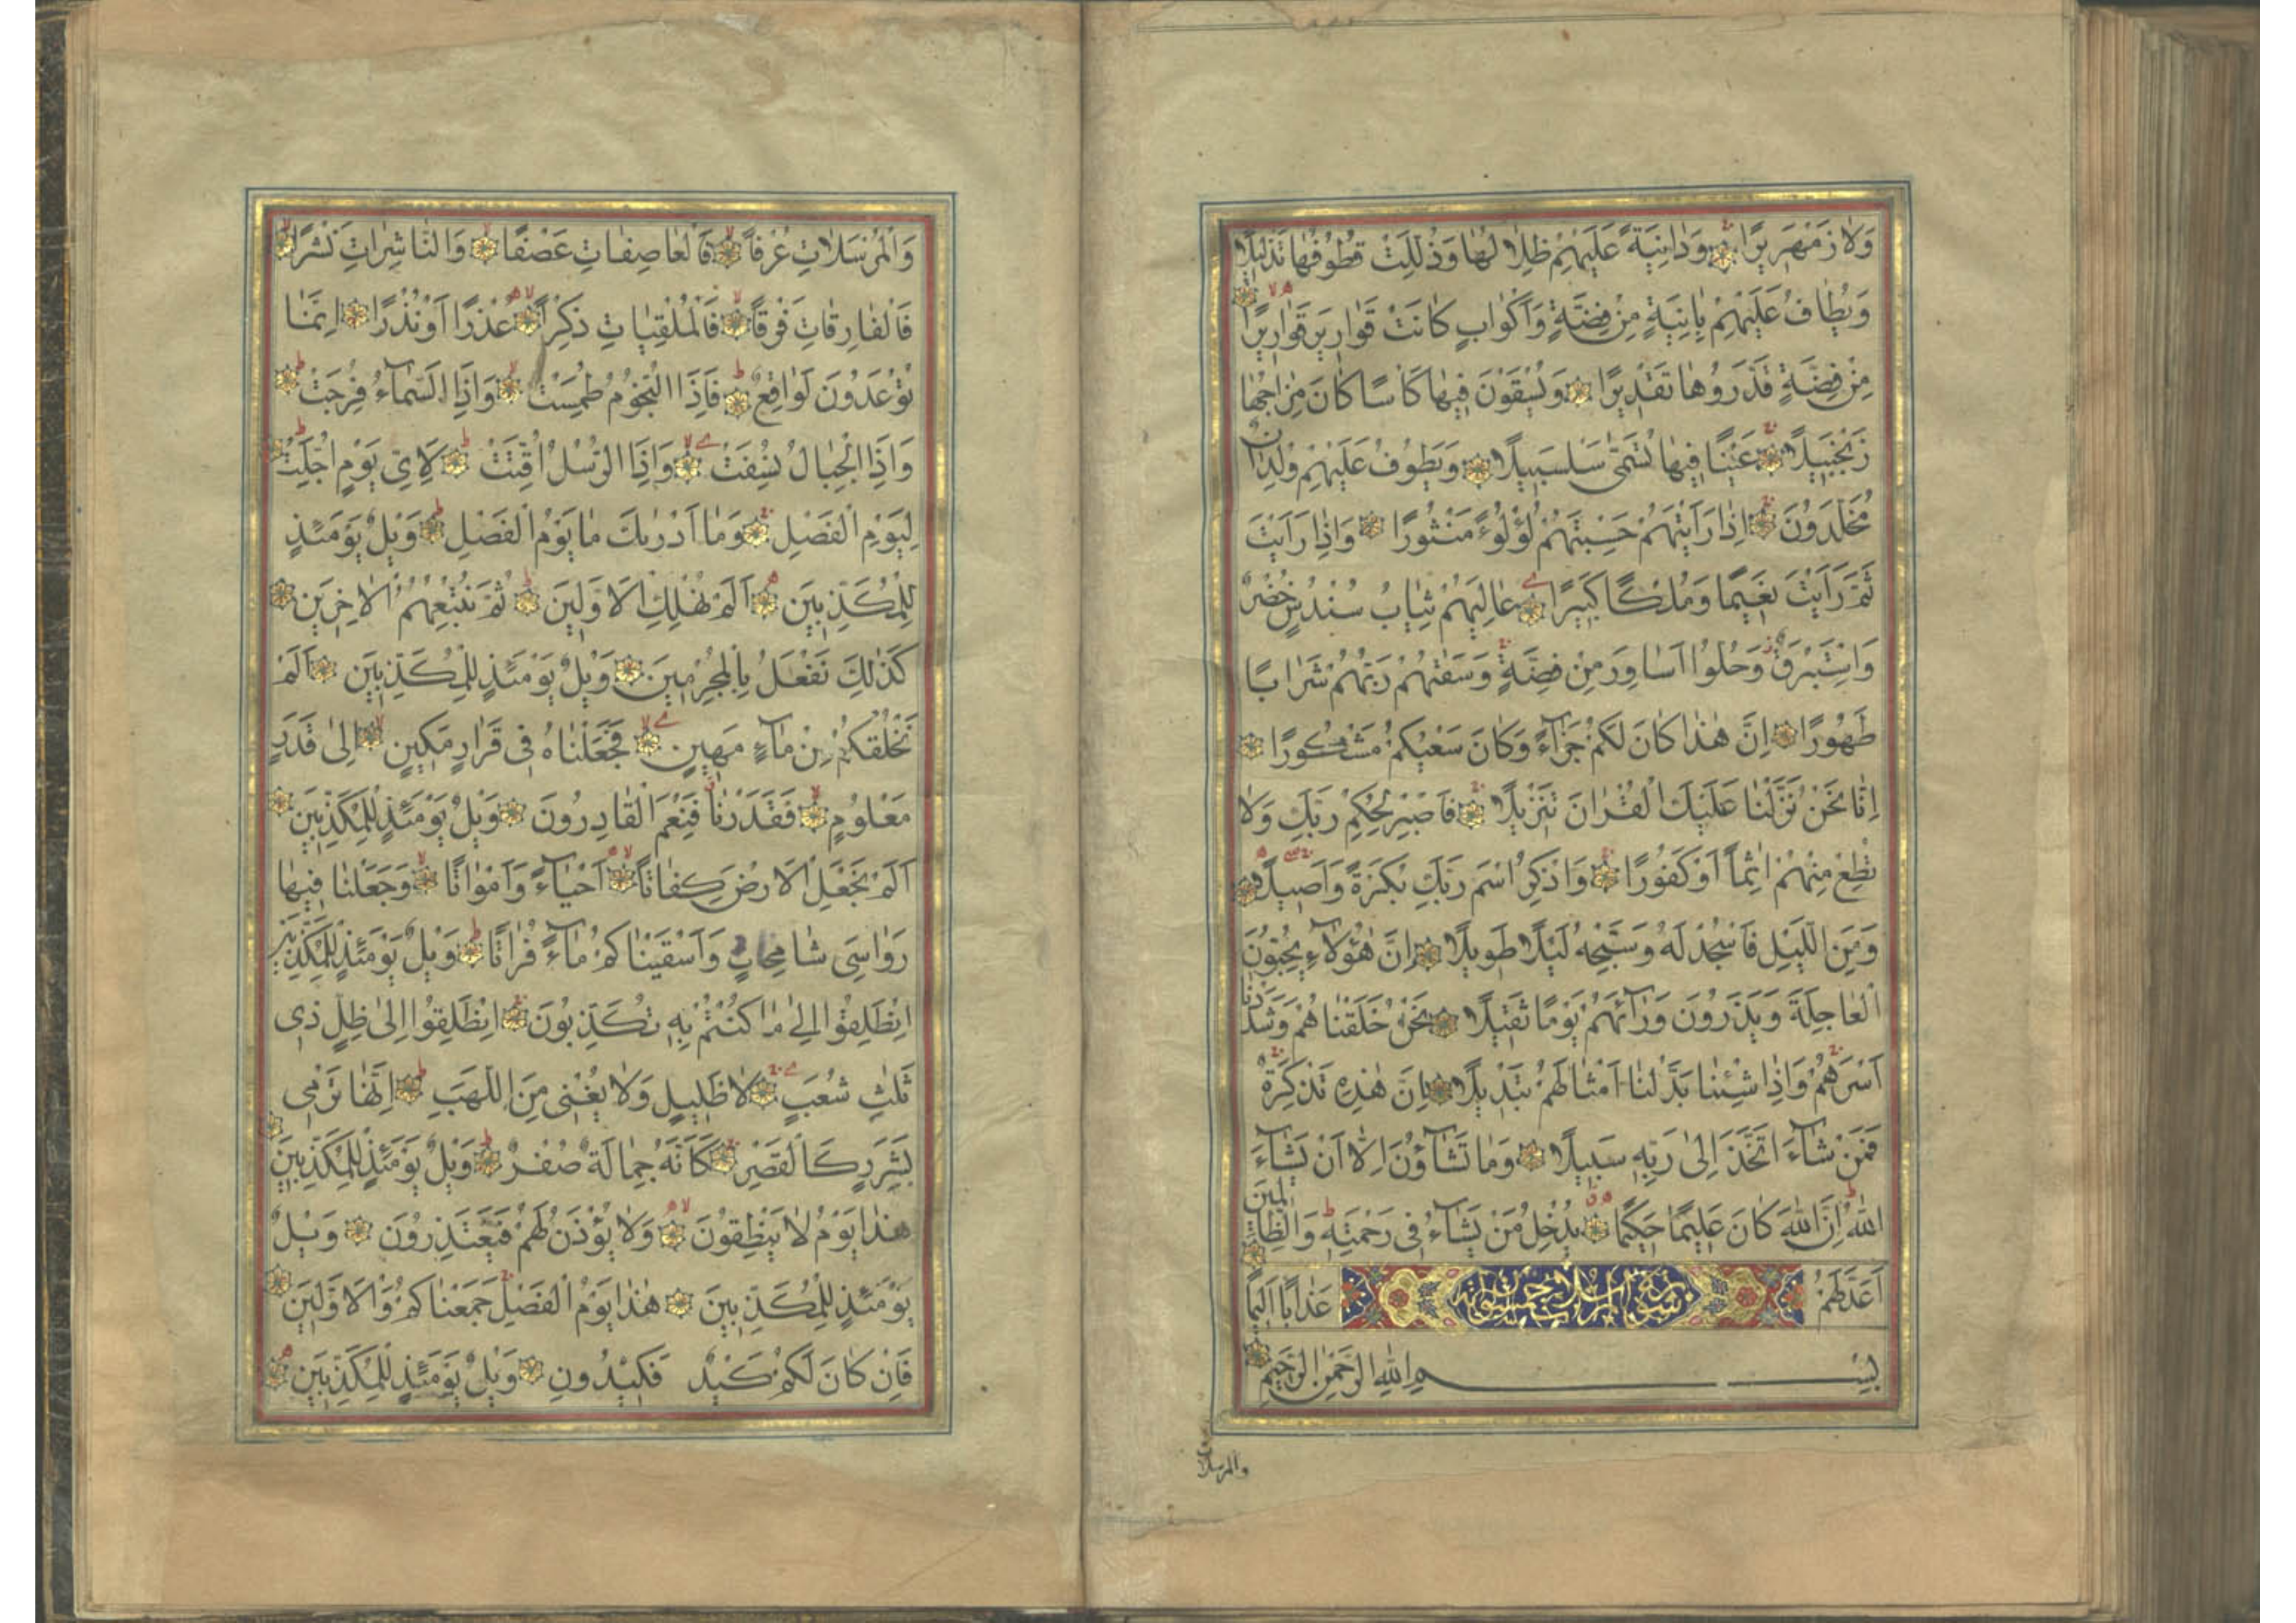 وَلَا زَمْهَرِيرًا وَدَانِيَةً عَلَيْهِمْ ظِلَالُهَا وَذُلِّلَتْ قُطُوفُهَا تَذْلِيلًا
وَيُطَافُ عَلَيْهِمْ بِاٰنِيَةٍ مِنْ فِضَّةٍ وَاَكْوَابٍ كَانَتْ قَوَارِيرَ قَوَارِيرًا
مِنْ فِضَّةٍ قَدَّرُوهَا تَقْدِيرًا وَيُسْقَوْنَ فِيهَا كَاْسًا كَانَ مِزَاجُهَا
زَنْجَبِيلًا عَيْنًا فِيهَا تُسَمّٰى سَلْسَبِيلًا وَيَطُوفُ عَلَيْهِمْ وِلْدَانٌ
مُخَلَّدُونَ اِذَا رَاَيْتَهُمْ حَسِبْتَهُمْ لُؤْلُؤًا مَنْثُورًا وَاِذَا رَاَيْتَ
ثَمَّ رَاَيْتَ نَعِيمًا وَمُلْكًا كَبِيرًا عَالِيَهُمْ ثِيَابُ سُنْدُسٍ خُضْرٌ
وَاِسْتَبْرَقٌ وَحُلُّوا اَسَاوِرَ مِنْ فِضَّةٍ وَسَقٰيهُمْ رَبُّهُمْ شَرَابًا
طَهُورًا اِنَّ هٰذَا كَانَ لَكُمْ جَزَآءً وَكَانَ سَعْيُكُمْ مَشْكُورًا
اِنَّا نَحْنُ نَزَّلْنَا عَلَيْكَ الْقُرْاٰنَ تَنْزِيلًا فَاصْبِرْ لِحُكْمِ رَبِّكَ وَلَا
تُطِعْ مِنْهُمْ اٰثِمًا اَوْ كَفُورًا وَاذْكُرِ اسْمَ رَبِّكَ بُكْرَةً وَاَصِيلًا
وَمِنَ اللَّيْلِ فَاسْجُدْ لَهُ وَسَبِّحْهُ لَيْلًا طَوِيلًا اِنَّ هٰؤُلَآءِ يُحِبُّونَ
الْعَاجِلَةَ وَيَذَرُونَ وَرَآءَهُمْ يَوْمًا ثَقِيلًا نَحْنُ خَلَقْنَاهُمْ وَشَدَدْنَا
اَسْرَهُمْ وَاِذَا شِئْنَا بَدَّلْنَا اَمْثَالَهُمْ تَبْدِيلًا اِنَّ هٰذِهِ تَذْكِرَةٌ
فَمَنْ شَآءَ اتَّخَذَ اِلٰى رَبِّهِ سَبِيلًا وَمَا تَشَآؤُنَ اِلَّا اَنْ يَشَآءَ
اللّٰهُ اِنَّ اللّٰهَ كَانَ عَلِيمًا حَكِيمًا يُدْخِلُ مَنْ يَشَآءُ فِى رَحْمَتِهِ وَالظَّالِمِينَ
اَعَدَّ لَهُمْ عَذَابًا اَلِيمًا
سورة المرسلات
بِسْمِ اللّٰهِ الرَّحْمٰنِ الرَّحِيمِ
والمرسلات
وَالْمُرْسَلَاتِ عُرْفًا فَالْعَاصِفَاتِ عَصْفًا وَالنَّاشِرَاتِ نَشْرًا
فَالْفَارِقَاتِ فَرْقًا فَالْمُلْقِيَاتِ ذِكْرًا عُذْرًا اَوْ نُذْرًا اِنَّمَا
تُوعَدُونَ لَوَاقِعٌ فَاِذَا النُّجُومُ طُمِسَتْ وَاِذَا السَّمَآءُ فُرِجَتْ
وَاِذَا الْجِبَالُ نُسِفَتْ وَاِذَا الرُّسُلُ اُقِّتَتْ لِاَىِّ يَوْمٍ اُجِّلَتْ
لِيَوْمِ الْفَصْلِ وَمَا اَدْرٰيكَ مَا يَوْمُ الْفَصْلِ وَيْلٌ يَوْمَئِذٍ
لِلْمُكَذِّبِينَ اَلَمْ نُهْلِكِ الْاَوَّلِينَ ثُمَّ نُتْبِعُهُمُ الْاٰخِرِينَ
كَذٰلِكَ نَفْعَلُ بِالْمُجْرِمِينَ وَيْلٌ يَوْمَئِذٍ لِلْمُكَذِّبِينَ اَلَمْ
نَخْلُقْكُمْ مِنْ مَآءٍ مَهِينٍ فَجَعَلْنَاهُ فِى قَرَارٍ مَكِينٍ اِلٰى قَدَرٍ
مَعْلُومٍ فَقَدَرْنَا فَنِعْمَ الْقَادِرُونَ وَيْلٌ يَوْمَئِذٍ لِلْمُكَذِّبِينَ
اَلَمْ نَجْعَلِ الْاَرْضَ كِفَاتًا اَحْيَآءً وَاَمْوَاتًا وَجَعَلْنَا فِيهَا
رَوَاسِىَ شَامِخَاتٍ وَاَسْقَيْنَاكُمْ مَآءً فُرَاتًا وَيْلٌ يَوْمَئِذٍ لِلْمُكَذِّبِينَ
اِنْطَلِقُوا اِلٰى مَا كُنْتُمْ بِهِ تُكَذِّبُونَ اِنْطَلِقُوا اِلٰى ظِلٍّ ذِى
ثَلٰثِ شُعَبٍ لَا ظَلِيلٍ وَلَا يُغْنِى مِنَ اللَّهَبِ اِنَّهَا تَرْمِى
بِشَرَرٍ كَالْقَصْرِ كَاَنَّهُ جِمَالَةٌ صُفْرٌ وَيْلٌ يَوْمَئِذٍ لِلْمُكَذِّبِينَ
هٰذَا يَوْمُ لَا يَنْطِقُونَ وَلَا يُؤْذَنُ لَهُمْ فَيَعْتَذِرُونَ وَيْلٌ
يَوْمَئِذٍ لِلْمُكَذِّبِينَ هٰذَا يَوْمُ الْفَصْلِ جَمَعْنَاكُمْ وَالْاَوَّلِينَ
فَاِنْ كَانَ لَكُمْ كَيْدٌ فَكِيدُونِ وَيْلٌ يَوْمَئِذٍ لِلْمُكَذِّبِينَ